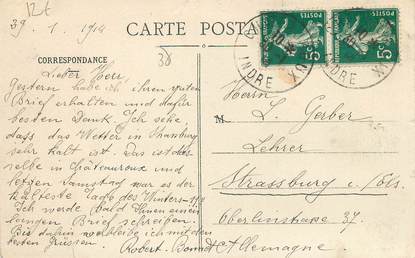 12€
29. 1 1914
CARTE POSTA
38
CORRESPONDANCE
Lieber Herr,
Gestern habe ich ihren guten
Brief erhalten und dafür
besten Dank. Ich sehe,
dass das Wetter in Strassburg
sehr kalt ist. Das ist das-
selbe in Châteauroux und
letzen Samstag war es der
kälteste Tag des Winters
Ich werde bald Ihnen einen
langen Brief schreiben.
Bis dahin verbleibe ich mit den
besten Grüssen.
Robert
INDRE
INDRE
POSTES
5c
POSTES
5c
Herrn
M L. Gerber
Lehrer
Strassburg i. Els.
Oberlinstrasse 37.
Allemagne